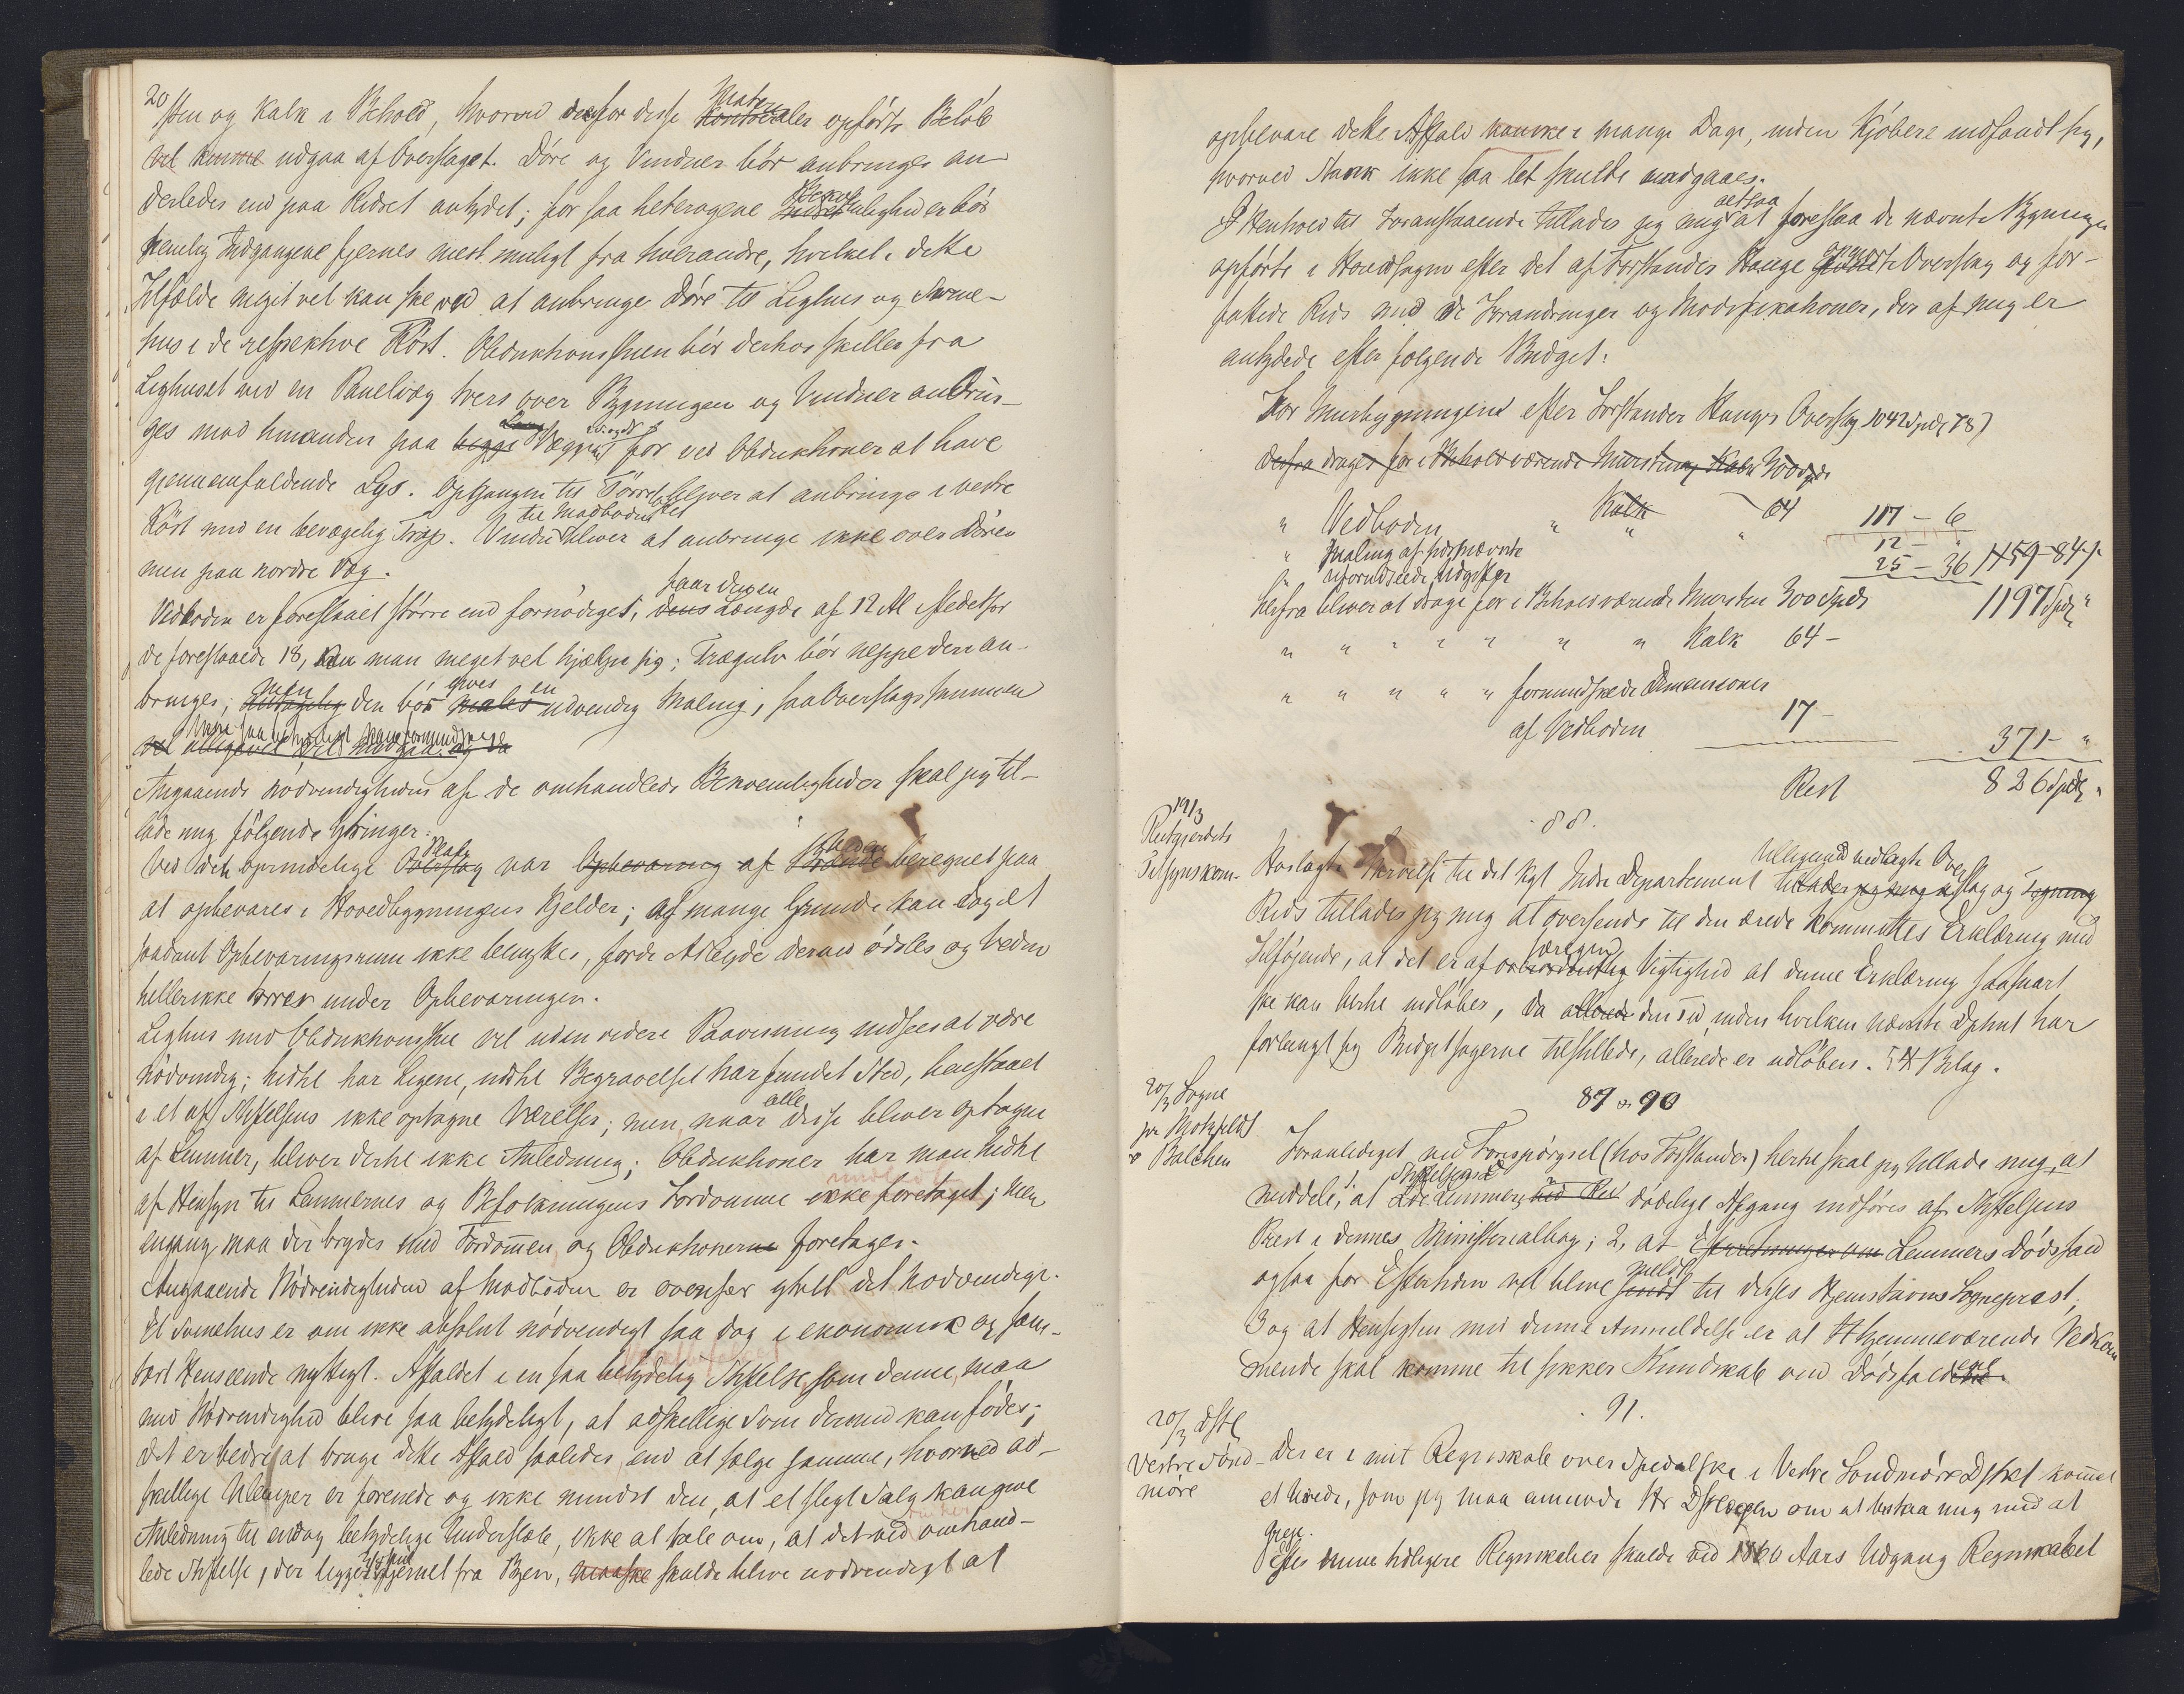 20
Sten og Kalk i Behold, hvorved det for disse Materialer opførte Beløb
vel kunne udgaa af Overslaget. Döre og Vinduer bör anbringes an-
derledes end paa Ridset antydet; for saa heterogene Bekvemligheder bör
nemlig Indgangene fjernes mest muligt fra hverandre, hvilket i dette
Tilfælde meget vel kan ske ved at anbringe Döre til Lighus og Svine-
hus i de respektive Röst. Obduktionsstuen bör derhos skilles fra
Lighuset ved en Panelvæg tvers over Bygningen og Vinduer anbrin-
ges mod hinanden paa begge Vægge for ved Obduktioner at have
gjennemfaldende Lys. Opgangen til Törreloftet bliver at anbringe i vestre
Röst med en bevægelig Trap. Vindu til Madboden bliver at anbringe ikke over Dören
men paa nordre Væg.
Vedboden er foreslaaet större end fornödiges, paa en Længde af 12 Al istedetfor
de foreslaaede 18, kan man meget vel hjælpe sig; Trægulv bör neppe der an-
bringes; men den bör gives en udvendig Maling, saa Overslagssummen
vel alligevel vil
Angaaende Nödvendigheden af de omhandlede Bekvemligheder skal jeg til-
lade mig fölgende Ytringer:
Ved det oprindelige Overslag var Opbevaring af Brænde beregnet paa
at opbevares i Hovedbygningens Kjelder; af mange Grunde kan dog et
saadant Opbevaringsrum ikke benyttes, fordi Arbeide derved ödsles og Veden
heller ikke törrer under Opbevaringen.
Lighus med Obduktionsstue vil uden videre Paavisning indsees at være
nödvendig; hidtil har Ligene, indtil Begravelse har fundet Sted, henstaaet
i et af Stiftelsens ikke optagne Værelser; men, naar alle disse bliver optagne
af Lemmer, bliver dertil ikke Anledning; Obduktioner har man hidtil
af Hensyn til Lemmernes og Befolkningens Fordomme ikke foretaget; men
engang maa der brydes med Fordommen og Obduktioner foretages.
Angaaende Nödvendigheden af Madboden er ovenfor ytret det Nödvendige.
Et Svinehus er om ikke absolut nödvendigt saa dog i ekonomisk og sani-
tært Henseende nyttigt. Affaldet i en saa betydelig Stiftelse som denne, maa
med Nödvendighed blive saa betydeligt, at adskillige Svin dermed kan födes;
det er bedre at bruge dette Affald saaledes, end at sælge samme, hvorved ad-
skillige Ulemper er forenede og ikke mindst den, at et sligt Salg kan give
Anledning til endog betydelige Underslæb, ikke at tale om, at det ved omhand-
lede Stiftelse, der ligger 3/4 Mil fjernet fra Byen, maaske skulde blive nödvendigt at
opbevare dette Affald kanske i mange Dage, inden Kjöbere indfandt sig,
hvorved Stank ikke saa let skulde undgaaes.
I Henhold til Foranstaaende tillades jeg mig altsaa at foreslaa de nævnte Bygninger
opförte i Hovedsagen efter det af Forstander Hauge givne Overslag og for-
fattede Rids med de Forandringer og Modifikationer, der af mig er
antydede efter fölgende Budget:
For Murbygningen efter Forstander Hauges Overslag 1042 Spd 78)
Derfra drages for i Behold værende Mursten og Kalk 300 Spd
" Vedboden " Kalk 64 117 – 6
" Maling af sidstnævnte " " 12 – "
" uforudseede Udgifter 25 – 36 1459–84
herfra bliver at drage for i Behold værende Mursten 300 Spd 1197 Spd "
" " " " " " " Kalk 64 –
" " " " " formindskede Dimensioner
af Vedboden 17 – 371 – "
Rest 826 Spd "
88.
19/3
Reitgjerdets
Tilsynskom.
Hoslagte Skrivelse til det kgl Indre Departement tilligemed vedlagte Overslag og Tegning
Rids tillades jeg mig at oversende til den ærede Kommittes Erklæring med
Tilföiende, at det er af særegen Vigtighed at denne Erklæring saasnart
ske kan hertil indlöber, da den Tid, inden hvilken nævnte Dptmt har
forlangt sig Budgetsagerne tilstillede, allerede er udlöben. 54 Bilag.
89 og 90
20/3 Sogne
pr Motzfeldt
& Balchen
Foranlediget ved Forespörgsel (hos Forstander) hertil skal jeg tillade mig at
meddele, 1, at Stiftelsens Lemmers dödelige Afgang indföres af Stiftelsens
Prest i dennes Ministerialbog; 2, at Efterretninger om Lemmers Dödsfald
ogsaa for Eftertiden vil blive meldt til disses Hjemstavns Sogneprest,
3 og at Hensigten med denne Anmeldelse er at Hjemmeværende Vedkom-
mende skal komme til sikker Kundskab om Dödsfaldene.
91.
20/3 Dstl
Vestre Sönd-
möre
Der er i mit Regnskab over Spedalske i Vestre Söndmöre Dstrkt kommet
et Urede, som jeg maa anmode Hr Dstlægen om at bistaa mig med at
greje.
Efter denne tidligere Regnskaber skulde ved 1860 Aars Udgang Regnskabet